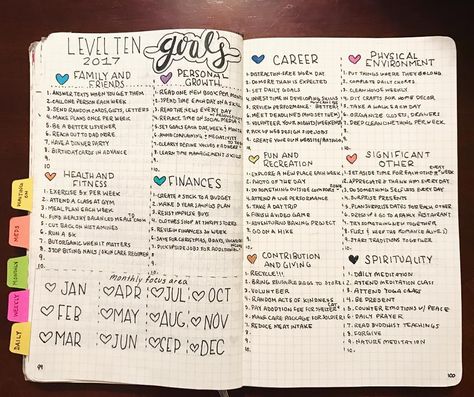 LEVEL TEN goals
2017
FAMILY AND FRIENDS
1. ANSWER TEXTS WHEN YOU GET THEM
2. CALL ONE PERSON EACH WEEK
3. SEND RANDOM CARDS, GIFTS, LETTERS
4. MAKE PLANS ONCE PER WEEK
5. BE A BETTER LISTENER
6. REACH OUT TO DAD MORE
7. HAVE A DINNER PARTY
8. BIRTHDAY CARDS IN ADVANCE
9.
10.
PERSONAL GROWTH
1. READ ONE NEW BOOK PER MONTH
2. SPEND TIME EACH DAY ON A
3. READ THE NEWS EVERY DAY
4. REPLACE TIME OF SOCIAL MEDIA
5. SET GOALS EACH DAY, WEEK & MONTH
6. MINIMALIZE
7. CLEARLY DEFINE VALUES &
8. LEARN TIME MANAGEMENT SKILLS
HEALTH AND FITNESS
1. EXERCISE 5X PER WEEK
2. ATTEND A CLASS AT GYM
3. MEAL PLAN EACH WEEK
4. FIND HEALTHY
5. CUT BACK ON HISTAMINES
6. RUN A 5K
7. BUY ORGANIC WHEN IT MATTERS
8. STOP BITING NAILS / SKIN CARE REGIMEN
9.
10.
FINANCES
1. CREATE & STICK TO A BUDGET
2. MAKE 2 YEAR LANDING PLAN
3. RESIST IMPULSE BUYS
4. CLOTHES SHOP AT THRIFT STORES
5. REVIEW FINANCES 2X WEEK
6. SAVE FOR CHRISTMAS, BOARD,
7. PICK UP SIDE JOBS FOR ADDITIONAL
monthly focus area
JAN APR JUL OCT
FEB MAY AUG NOV
MAR JUN SEP DEC
99
CAREER
1. DISTRACTION-FREE WORK DAY
2. DO MORE THAN IS EXPECTED
3. SET DAILY GOALS
4. INVEST TIME IN DEVELOPING SKILLS
5. REVIEW PERFORMANCE
6. MEET DEADLINES (AND SET THEM)
7. VOLUNTEER YOUR
8. PICK UP WEB DESIGN SIDE JOBS
9. CREATE YOUR OWN WEBSITE/
10.
PHYSICAL ENVIRONMENT
1. PUT THINGS WHERE THEY BELONG
2. COMPLETE DAILY CHORES
3. CLEAN HOUSE WEEKLY
4. DIY CRAFTS FOR HOME DECOR
5. TAKE A WALK EACH DAY
6. ORGANIZE CLOSETS, DRAWERS
7. DEEP CLEAN THINGS PER WEEK
8.
9.
10.
FUN AND RECREATION
1. EXPLORE A NEW PLACE EACH WEEK
2. PHOTO OF THE DAY
3. DO SOMETHING OUTSIDE COMFORT ZONE
4. ATTEND A LIVE PERFORMANCE
5. TAKE A DAY TRIP
6. FINISH A VIDEO GAME
7. ADVENTURING/BAKING PROJECT
8. GO ON A HIKE
9.
10.
SIGNIFICANT OTHER
1. SET ASIDE TIME FOR EACH OTHER EVERY WEEK
2. APPRECIATE THEM EVERY DAY
3. DO SOMETHING SELFLESS EVERY DAY
4. SURPRISE PRESENTS
5. PLAN SURPRISE DATES FOR EACH OTHER
6. DRESS UP & GO TO A FANCY RESTAURANT
7. TRY SOMETHING NEW TOGETHER
8. FLIRT (KEEP THE ROMANCE ALIVE)
9. START TRADITIONS TOGETHER
10.
CONTRIBUTION AND GIVING
1. RECYCLE!!!
2. BRING REUSABLE BAGS TO STORE
3. VOLUNTEER
4. RANDOM ACTS OF KINDNESS
5. PAY ADOPTION FEE FOR SHELTER CAT
6. MAKE CARE PACKAGE FOR SOLDIER
7. REDUCE MEAT INTAKE
8.
9.
10.
SPIRITUALITY
1. DAILY MEDITATION
2. ATTEND MEDITATION CLASS
3. ATTEND YOGA CLASS
4. BE PRESENT
5. COUNTER EMOTIONS W/ PEACE
6. DAILY PRAYER
7. READ BUDDHIST TEACHINGS
8. FORGIVE
9. NATURE MEDITATION
10.
100
MEDS
MONTHLY
WEEKLY
DAILY